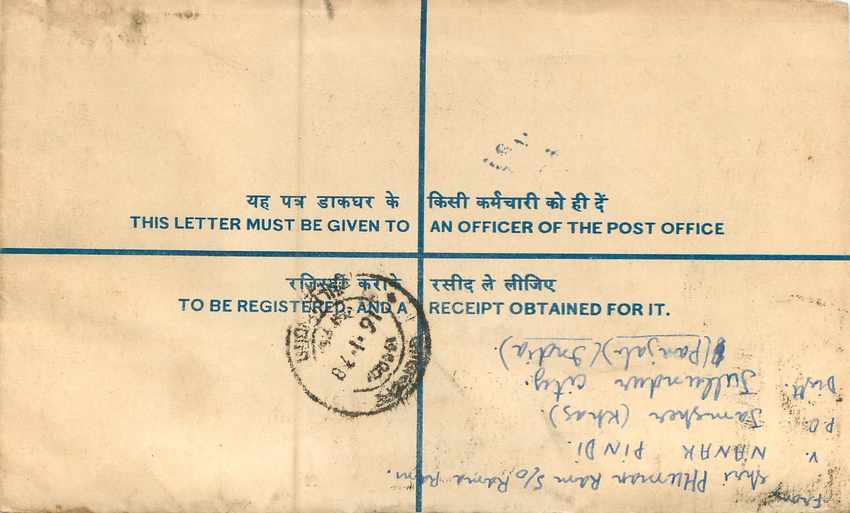 यह पत्र डाकघर के किसी कर्मचारी को ही दें
THIS LETTER MUST BE GIVEN TO AN OFFICER OF THE POST OFFICE
रजिस्ट्री करावे रसीद ले लीजिए
TO BE REGISTERED, AND A RECEIPT OBTAINED FOR IT.
16·1·78
From
Shri PHuman Ram S/O Rama Ram.
V. NANAK PINDI.
P.O. Jamsher (Khas)
Distt. Jullundur city.
(Panjab) (India)